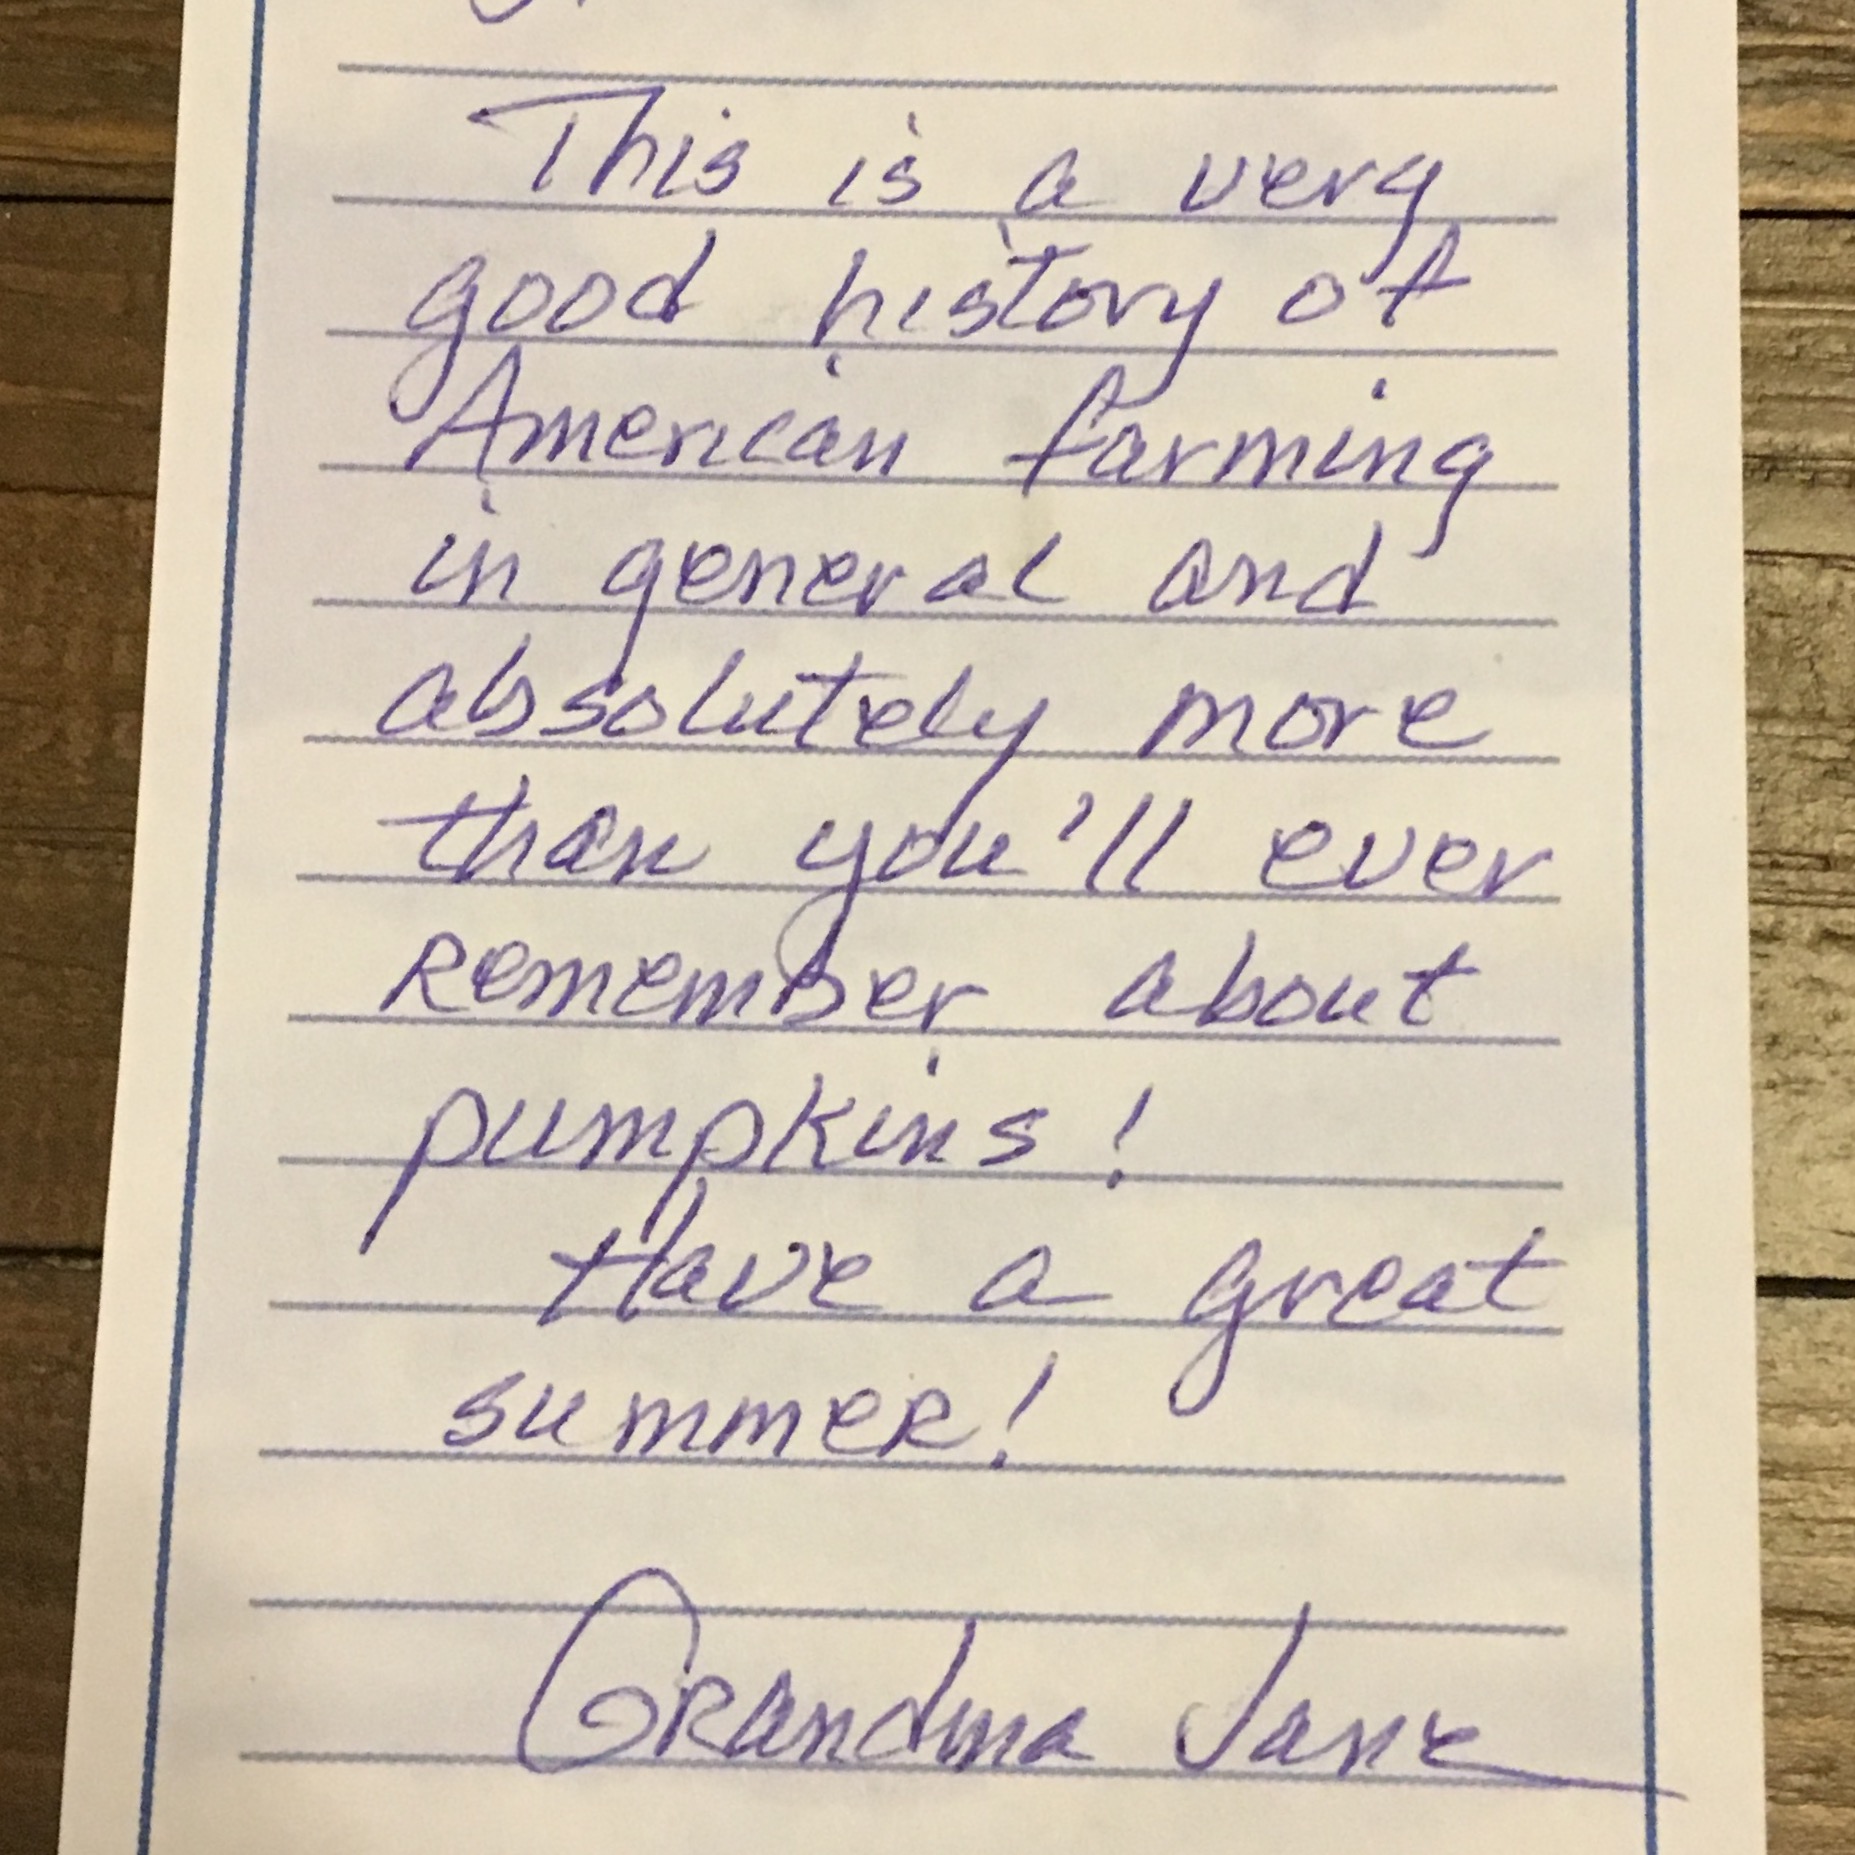 This is a very
good history of
American farming
in general and
absolutely more
than you'll ever
remember about
pumpkins!
Have a great
summer!
Grandma Jane